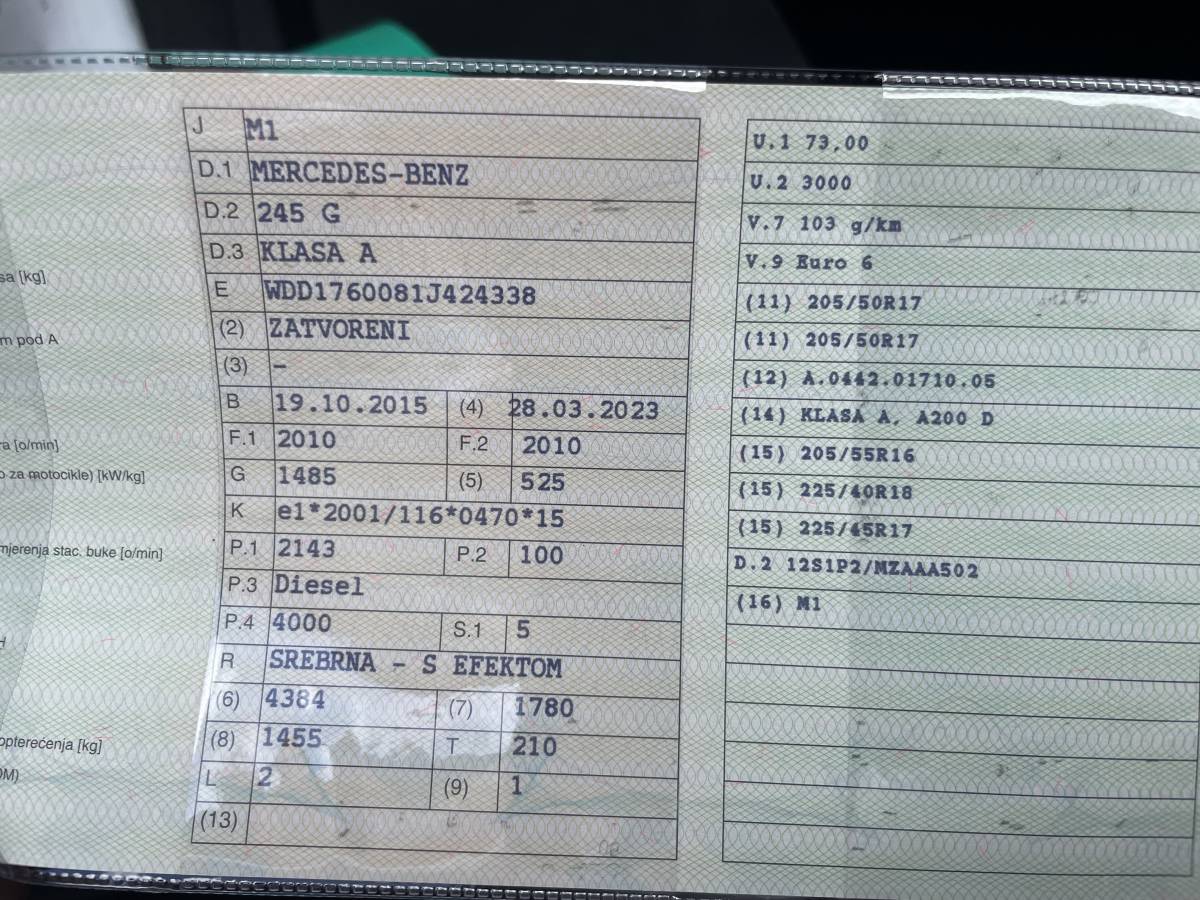 sa [kg]
m pod A
a [o/min]
o za motocikle) [kW/kg]
mjerenja stac. buke [o/min]
opterećenja [kg]
OM)
J M1
D.1 MERCEDES-BENZ
D.2 245 G
D.3 KLASA A
E WDD1760081J424338
(2) ZATVORENI
(3) –
B 19.10.2015 (4) 28.03.2023
F.1 2010 F.2 2010
G 1485 (5) 525
K e1*2001/116*0470*15
P.1 2143 P.2 100
P.3 Diesel
P.4 4000 S.1 5
R SREBRNA - S EFEKTOM
(6) 4384 (7) 1780
(8) 1455 T 210
L 2 (9) 1
(13)
U.1 73,00
U.2 3000
V.7 103 g/km
V.9 Euro 6
(11) 205/50R17
(11) 205/50R17
(12) A.0442.01710.05
(14) KLASA A, A200 D
(15) 205/55R16
(15) 225/40R18
(15) 225/45R17
D.2 12S1P2/MZAAA502
(16) M1